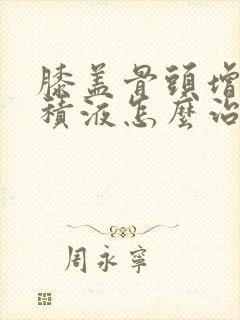 膝盖骨頭增
積液怎麼治
周永寧